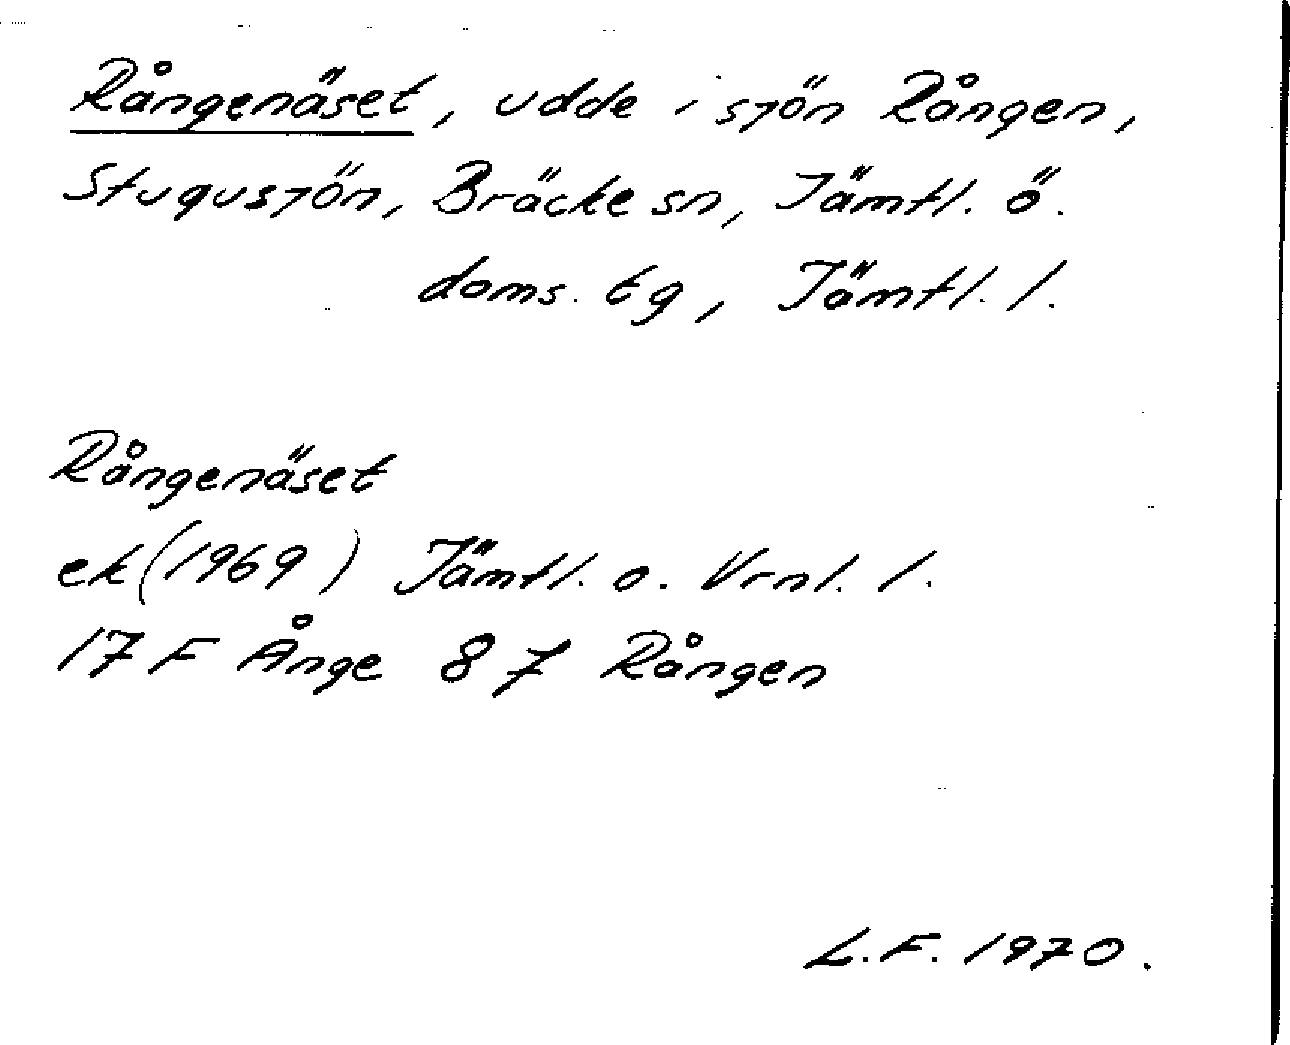 Rångenäset, udde i sjön Rången,
Stugusjön, Bräcke sn, Jämtl. ö.
doms. tg, Jämtl. l.
Rångenäset
ek (1969) Jämtl. o. Vrnl. l.
17 F Ånge 8 7 Rången
L.F. 1970.